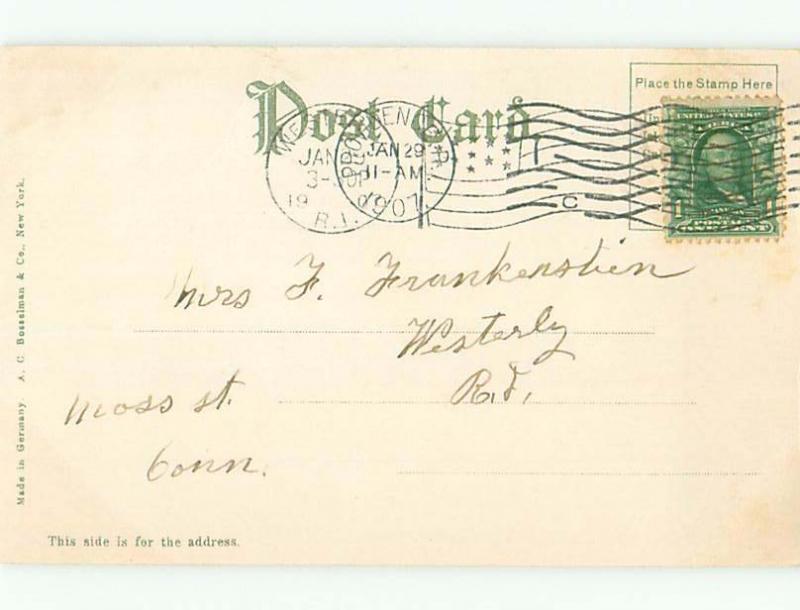 Place the Stamp Here
Post Card
JAN 29
11-AM
1907
R.I.
UNITED STATES
Mrs F. Frankenstien
Westerly
R.I.,
Moss st.
Conn.
Made in Germany. A. C. Bosselman & Co., New York.
This side is for the address.